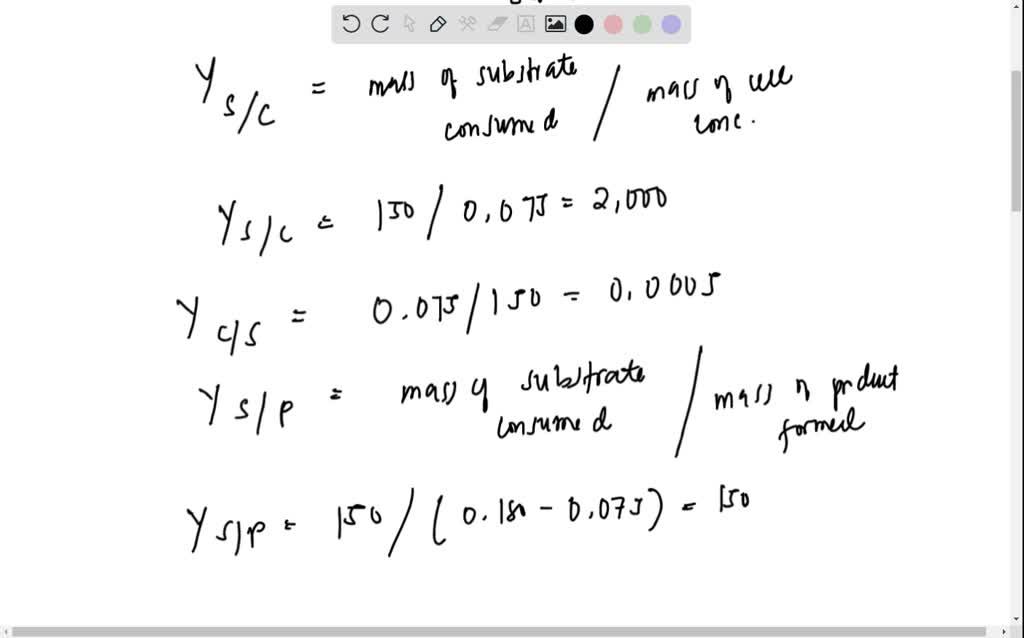 Y S/C = mass of substrate consumed / mass of cell conc.
Y S/C = 150 / 0.075 = 2,000
Y C/S = 0.075 / 150 = 0.0005
Y S/P = mass of substrate consumed / mass of product formed
Y S/P = 150 / (0.180 - 0.075) = 150